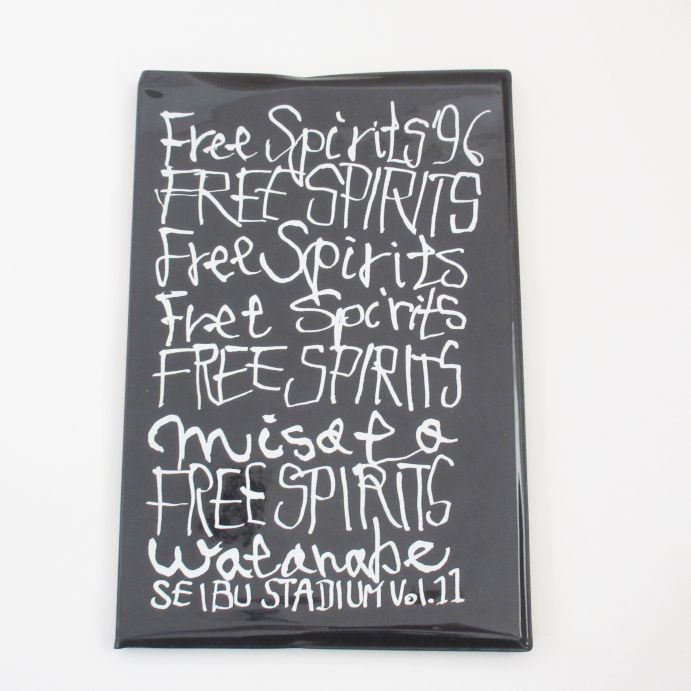 Free Spirits '96
FREE SPIRITS
Free Spirits
Free Spirits
FREE SPIRITS
misato
FREE SPIRITS
watanabe
SEIBU STADIUM Vol.11